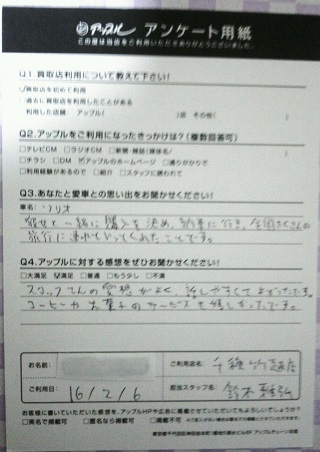 アップル アンケート用紙
この度は当店をご利用いただきありがとうございました。
Q1.買取店利用について教えて下さい！
☑買取店を初めて利用
□過去に買取店を利用したことがある
利用した店舗 アップル( )店 その他( )
Q2.アップルをご利用になったきっかけは？(複数回答可)
□テレビCM □ラジオCM □新聞・雑誌(媒体名/ )
□チラシ □DM ☑アップルのホームページ □通りがかりで
□利用経験があるので □紹介 □スタッフに誘われて
Q3.あなたと愛車との思い出をお聞かせ下さい。
車名: ソリオ
彼女と一緒に購入を決め、納車に行き、全国たくさんの
旅行に連れていってくれたことです。
Q4.アップルに対する感想をぜひお聞かせ下さい。
□大満足 ☑満足 □普通 □もう少し □不満
スタッフさんの愛想がよく、話しやすくてよかったです。
コーヒーやお菓子のサービスも嬉しかったです。
お名前:
ご利用日: 16/2/6
ご利用店名: 千種
担当スタッフ名: 鈴木
お客様に書いていただいた感想を、アップルHPや広告に掲載させていただいてもよろしいでしょうか？
□実名で掲載可 □匿名なら掲載可 □掲載不可